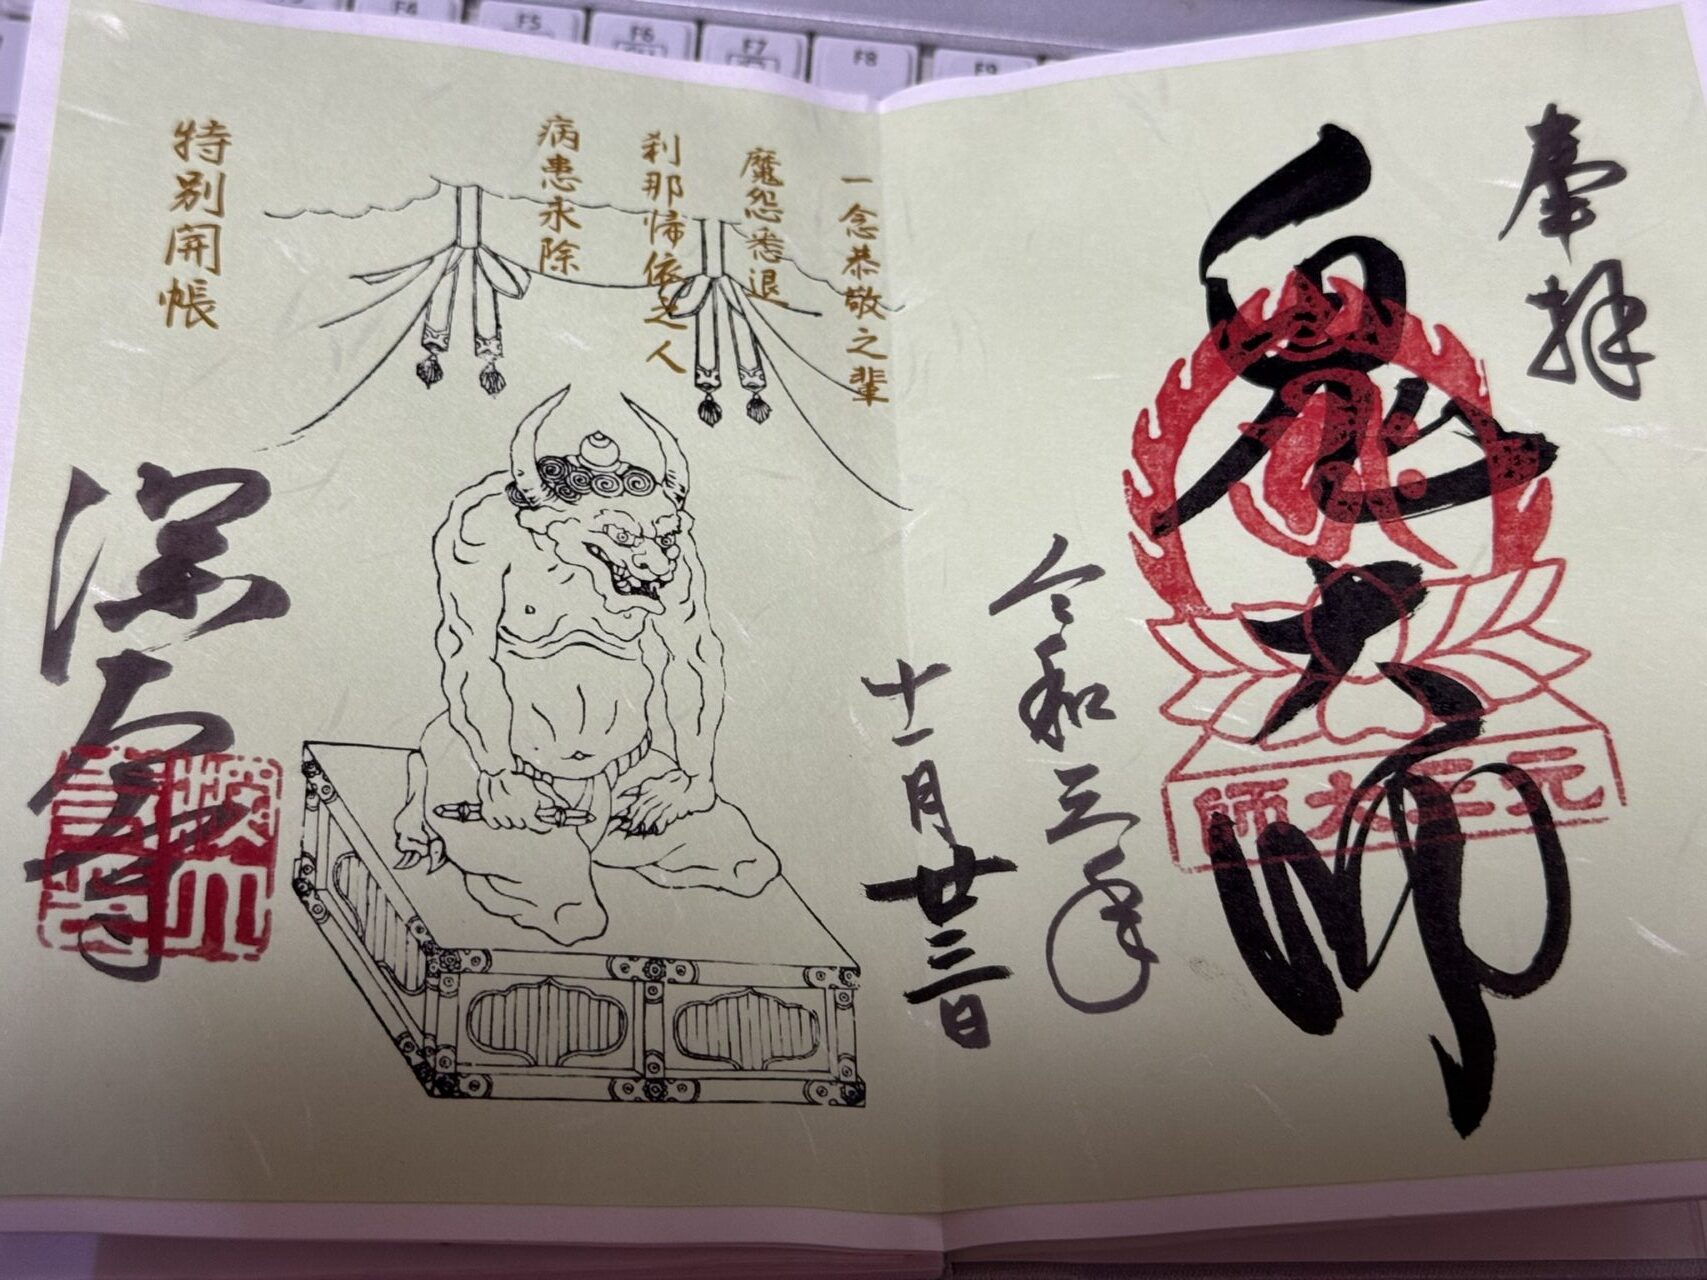 F4
F5
F6
F7
F8
F9
奉拝
鬼大師
元三大師
令和三年
十一月廿三日
一念恭敬之輩
魔怨悉退
刹那帰依之人
病患永除
特別開帳
深大寺